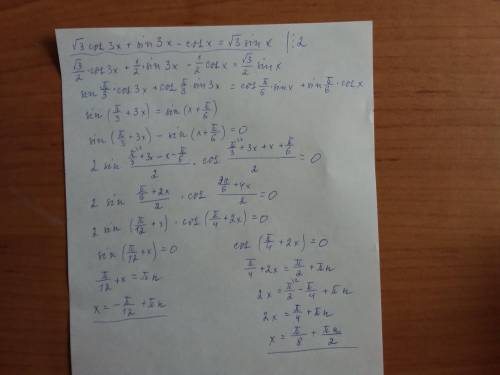 √3 cos 3x + sin 3x − cos x = √3 sin x |:2
√3/2 · cos 3x + 1/2 · sin 3x − 1/2 cos x = √3/2 sin x
sin π/3 · cos 3x + cos π/3 sin 3x = cos π/6 · sin x + sin π/6 · cos x
sin (π/3 + 3x) = sin (x + π/6)
sin (π/3 + 3x) − sin (x + π/6) = 0
2 sin (π/3 + 3x − x − π/6)/2 · cos (π/3 + 3x + x + π/6)/2 = 0
2 sin (π/6 + 2x)/2 · cos (3π/6 + 4x)/2 = 0
2 sin (π/12 + x) · cos (π/4 + 2x) = 0
sin (π/12 + x) = 0
π/12 + x = πn
x = −π/12 + πn
cos (π/4 + 2x) = 0
π/4 + 2x = π/2 + πn
2x = π/2 − π/4 + πn
2x = π/4 + πn
x = π/8 + πn/2